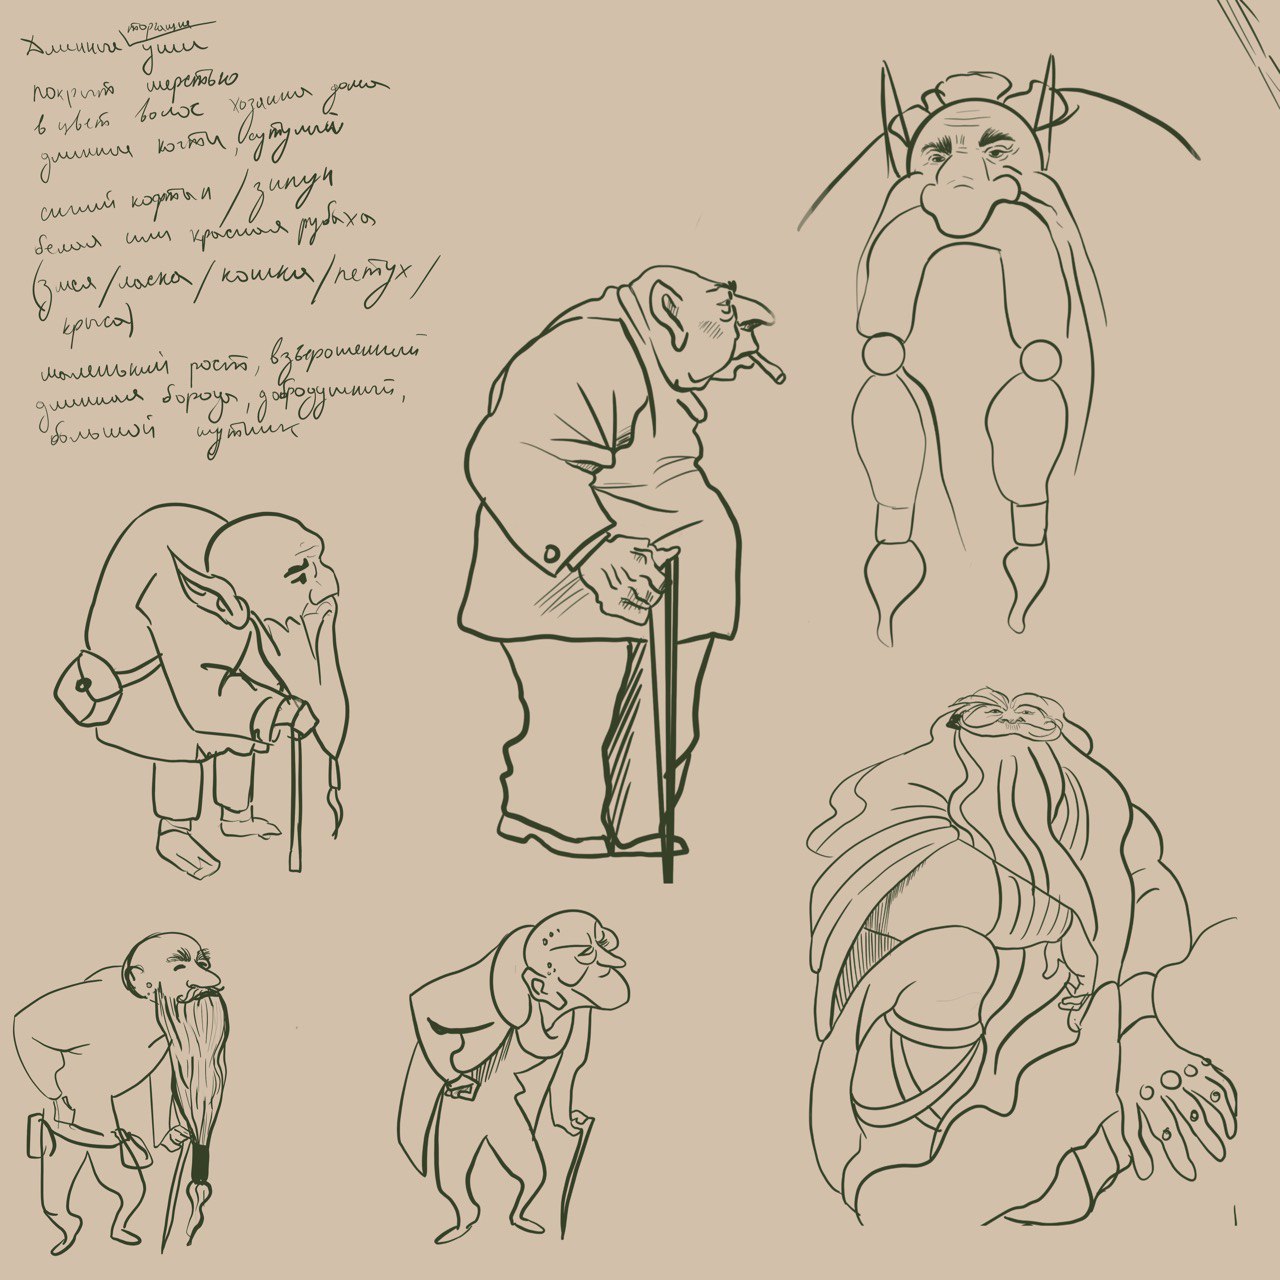 длинные торчащие уши
покрыт шерстью
в цвет волос хозяина дома
длинные когти, сутулый
синий кафтан / зипун
белая или красная рубаха
(змея / ласка / кошка / петух /
крыса)
маленький рост, взъерошенный
длинная борода, добродушный,
большой шутник